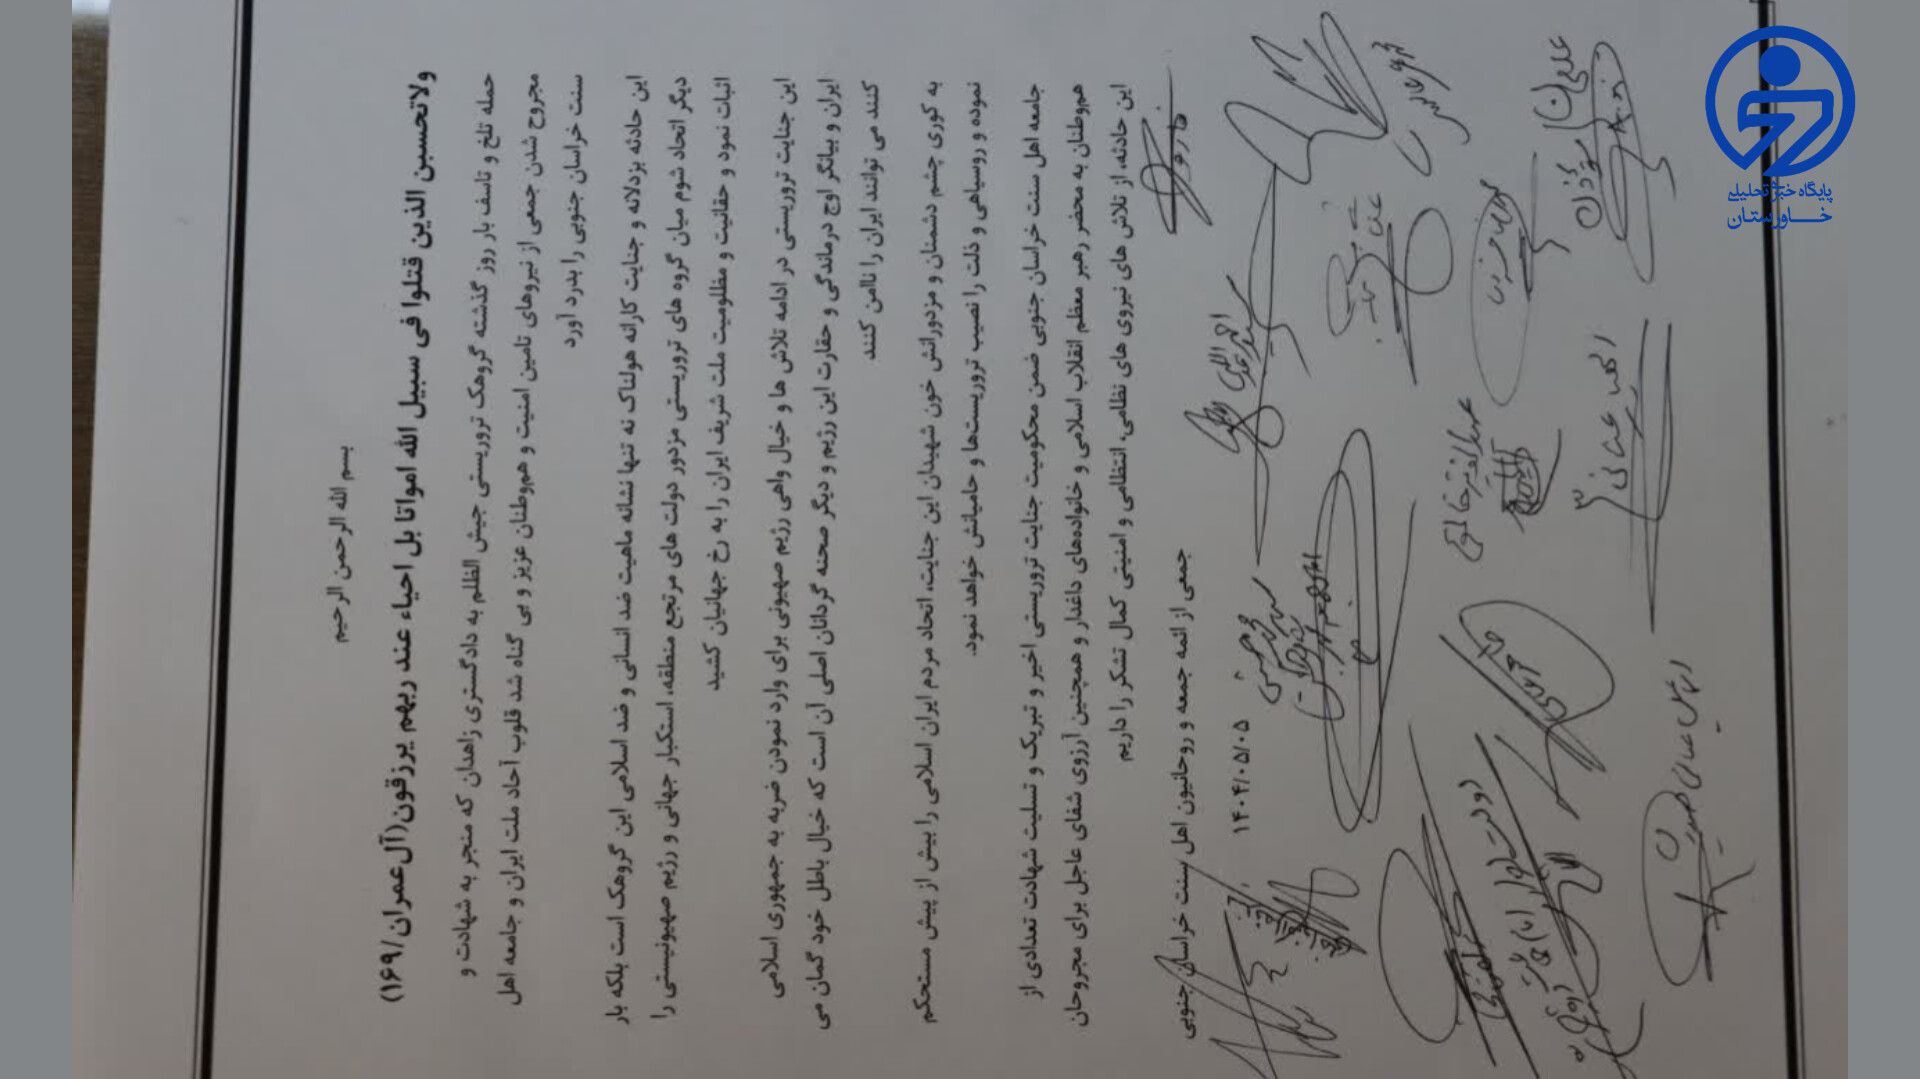 بسم الله الرحمن الرحیم
ولاتحسبن الذین قتلوا فی سبیل الله امواتا بل احیاء عند ربهم یرزقون(آل‌عمران/۱۶۹)
حمله تلخ و تاسف بار روز گذشته گروهک تروریستی جیش الظلم به دادگستری زاهدان که منجر به شهادت و
مجروح شدن جمعی از نیروهای تامین امنیت و هم‌وطنان عزیز و بی گناه شد قلوب آحاد ملت ایران و جامعه اهل
سنت خراسان جنوبی را بدرد آورد
این حادثه بزدلانه و جنایت کارانه هولناک نه تنها نشانه ماهیت ضد انسانی و ضد اسلامی این گروهک است بلکه بار
دیگر اتحاد شوم میان گروه های تروریستی مزدور دولت های مرتجع منطقه، استکبار جهانی و رژیم صهیونیستی را
اثبات نمود و حقانیت و مظلومیت ملت شریف ایران را به رخ جهانیان کشید
این جنایت تروریستی در ادامه تلاش ها و خیال واهی رژیم صهیونی برای وارد نمودن ضربه به جمهوری اسلامی
ایران و بیانگر اوج درماندگی و حقارت این رژیم و دیگر صحنه گردانان اصلی آن است که خیال باطل خود گمان می
کنند می توانند ایران را ناامن کنند
به کوری چشم دشمنان و مزدورانش خون شهیدان این جنایت، اتحاد مردم ایران اسلامی را بیش از پیش مستحکم
نموده و روسیاهی و ذلت را نصیب تروریست‌ها و حامیانش خواهد نمود.
جامعه اهل سنت خراسان جنوبی ضمن محکومیت جنایت تروریستی اخیر و تبریک و تسلیت شهادت تعدادی از
هم‌وطنان به محضر رهبر معظم انقلاب اسلامی و خانواده‌های داغدار و همچنین آرزوی شفای عاجل برای مجروحان
این حادثه، از تلاش های نیروی های نظامی، انتظامی و امنیتی کمال تشکر را داریم
جمعی از ائمه جمعه و روحانیون اهل سنت خراسان جنوبی
۱۴۰۴/۰۵/۰۵
پایگاه خبری تحلیلی
خاورستان